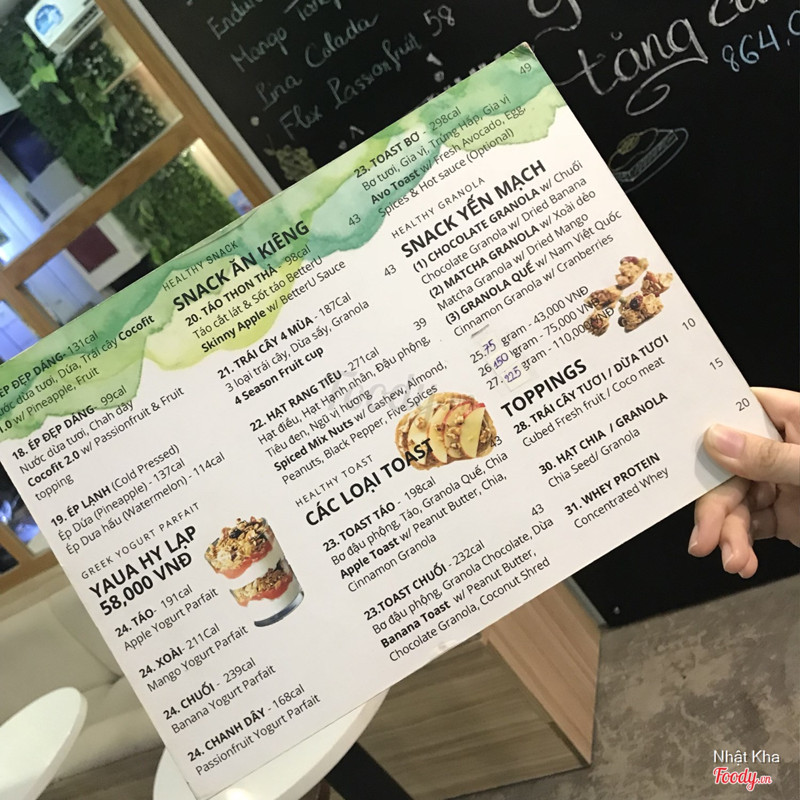 Mango
Pina Colada
Flex Passionfruit 58
tăng
864.
ÉP ĐẸP DÁNG- 131cal
ước dừa tươi, Dừa, Trái cây Cocofit
1.0 w/ Pineapple, Fruit
18. ÉP ĐẸP DÁNG- 99cal
Nước dừa tươi, Chanh dây
Cocofit 2.0 w/ Passionfruit & Fruit
topping
19. ÉP LẠNH (Cold Pressed)
Ép Dừa (Pineapple) - 137cal
Ép Dưa hấu (Watermelon) - 114cal
GREEK YOGURT PARFAIT
YAUA HY LẠP
58,000 VNĐ
24. TÁO- 191cal
Apple Yogurt Parfait
24. XOÀI- 211cal
Mango Yogurt Parfait
24. CHUỐI - 239cal
Banana Yogurt Parfait
24. CHANH DÂY - 168cal
Passionfruit Yogurt Parfait
HEALTHY SNACK
SNACK ĂN KIÊNG
20. TÁO THON THẢ - 98cal 43
Táo cắt lát & Sốt táo BetterU
Skinny Apple w/ BetterU Sauce
21. TRÁI CÂY 4 MÙA - 187Cal 43
3 loại trái cây, Dừa sấy, Granola
4 Season Fruit cup
22. HẠT RANG TIÊU - 271cal 39
Hạt điều, Hạt Hạnh nhân, Đậu phộng,
Tiêu đen, Ngũ vị hương
Spiced Mix Nuts w/ Cashew, Almond,
Peanuts, Black Pepper, Five Spices
HEALTHY TOAST
CÁC LOẠI TOAST
23. TOAST TÁO - 198cal 43
Bơ đậu phộng, Táo, Granola Quế, Chia
Apple Toast w/ Peanut Butter, Chia,
Cinnamon Granola
23.TOAST CHUỐI - 232cal 43
Bơ đậu phộng, Granola Chocolate, Dừa
Banana Toast w/ Peanut Butter,
Chocolate Granola, Coconut Shred
23. TOAST BƠ - 298cal 49
Bơ tươi, Gia vị, Trứng Hấp, Gia vị
Avo Toast w/ Fresh Avocado, Egg,
Spices & Hot sauce (Optional)
HEALTHY GRANOLA
SNACK YẾN MẠCH
(1) CHOCOLATE GRANOLA w/ Chuối
Chocolate Granola w/ Dried Banana
(2) MATCHA GRANOLA w/ Xoài dẻo
Matcha Granola w/ Dried Mango
(3) GRANOLA QUẾ w/ Nam Việt Quốc
Cinnamon Granola w/ Cranberries
25. 75 gram - 43,000 VNĐ
26. 150 gram - 75,000 VNĐ
27. 225 gram - 110,000 VNĐ
TOPPINGS
28. TRÁI CÂY TƯƠI / DỪA TƯƠI 10
Cubed Fresh fruit / Coco meat
30. HẠT CHIA / GRANOLA 15
Chia Seed/ Granola
31. WHEY PROTEIN 20
Concentrated Whey
Foody
Nhật Kha
Foody.vn